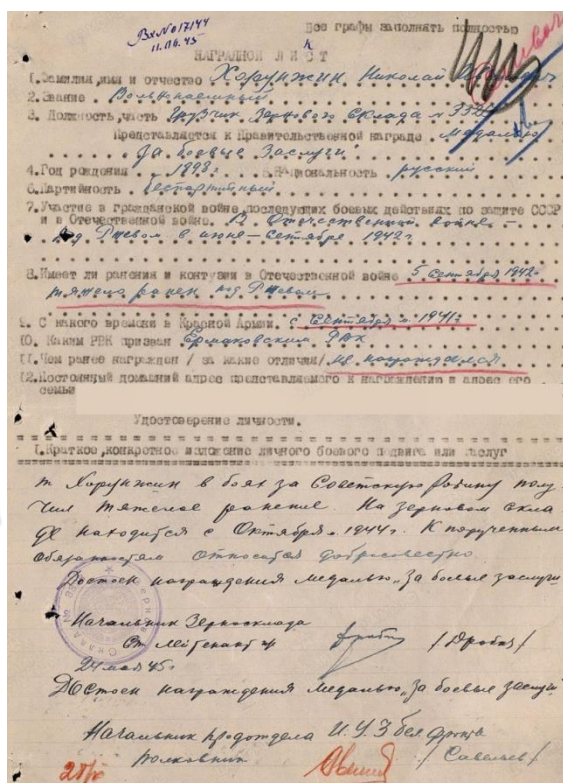 Вх №017144
11.06.45
Все графы заполнять полностью
НАГРАДНОЙ ЛИСТ
1. Фамилия, имя и отчество Хорунжин Николай
2. Звание Вольнонаемный
3. Должность, часть Грузчик Зернового Склада №
Представляется к Правительственной награде Медалью
"За боевые Заслуги"
4. Год рождения 1898 г. 5. Национальность русский
6. Партийность беспартийный
7. Участие в гражданской войне, последующих боевых действиях по защите СССР
и в Отечественной войне. В Отечественной войне –
под Ржевом в июне – Сентябре 1942 г.
8. Имеет ли ранения и контузии в Отечественной войне 5 Сентября 1942 г.
тяжело ранен под Ржевом
9. С какого времени в Красной Армии. с Сентября м. 1941 г
10. Каким РВК призван Ермаковским РВК
11. Чем ранее награжден / за какие отличия/ не награждался
12. Постоянный домашний адрес представляемого к награждению и адрес его
семьи
Удостоверение личности.
1. Краткое, конкретное изложение личного боевого подвига или заслуг
т Хорунжин в боях за Советскую Родину полу-
чил тяжелое ранение. На зерновом скла
де находится с Октября м. 1944 г. К порученным
обязанностям относится добросовестно
Достоин награждения Медалью „За боевые заслуги
Начальник Зерносклада
Ст Лейтенант
/Дробяз/
24 мая 45 г
Достоин награждения Медалью „За боевые заслуги
Начальник продотдела И.У. 3 бел фронта
полковник /Савельев/